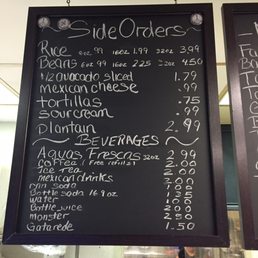 Side Orders
Rice 8oz .99 16oz 1.99 32oz 3.99
Beans 8oz .99 16oz 2.25 32oz 4.50
1/2 avocado sliced 1.79
mexican cheese .99
tortillas .75
sour cream .99
plantain 2.99
BEVERAGES
Aguas Frescas 32oz 2.99
Coffee (Free refills) 2.00
Ice tea 2.00
mexican drinks 2.00
can soda 1.00
Bottle soda 16.9oz
water 1.00
Bottle juice 2.00
monster 2.50
Gatarede 1.50